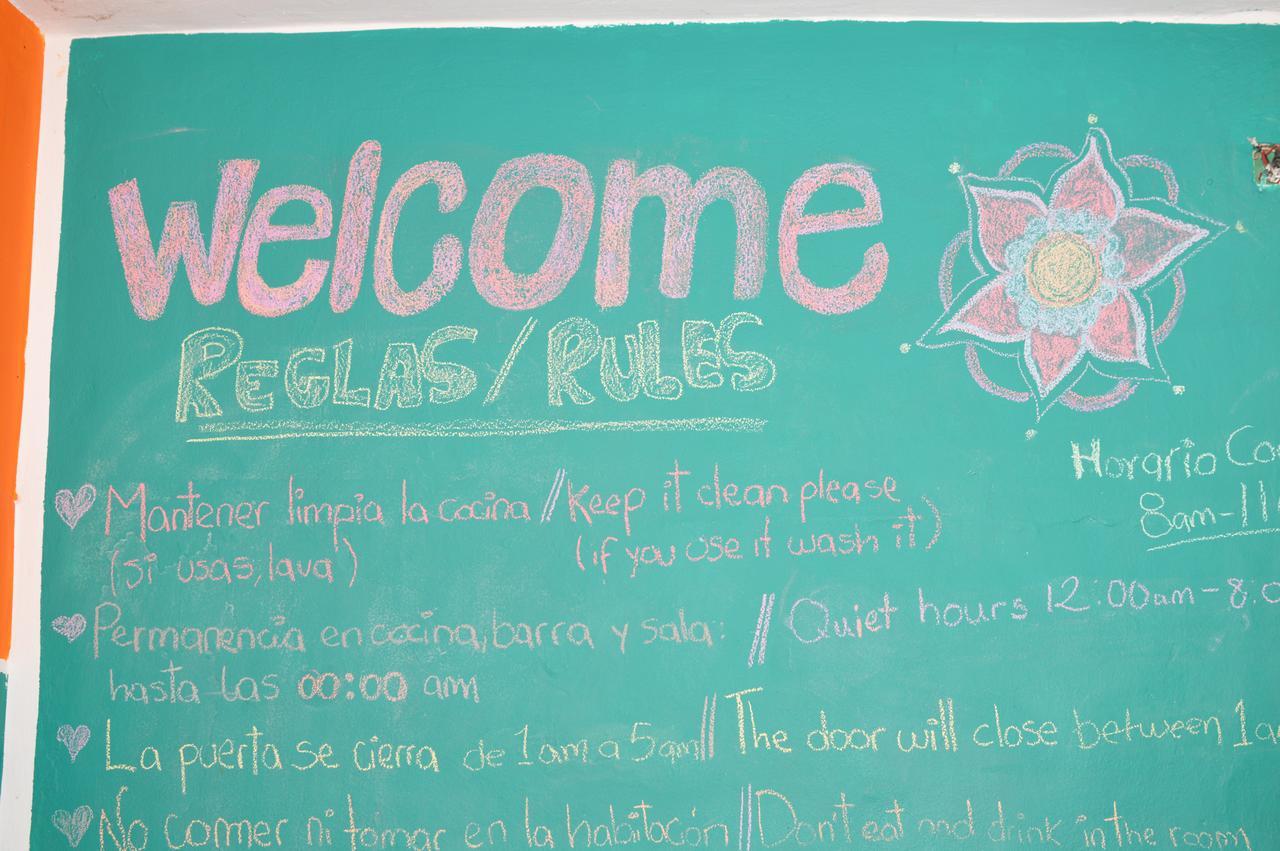 welcome
REGLAS/RULES
Horario
8am-11
Mantener limpia la cocina // Keep it clean please
(si usas, lava) (if you use it wash it)
Permanencia en cocina, barra y sala: // Quiet hours 12:00am-8:0
hasta las 00:00 am
La puerta se cierra de 1am a 5am // The door will close between 1a
No comer ni tomar en la habitación // Don't eat and drink in the room